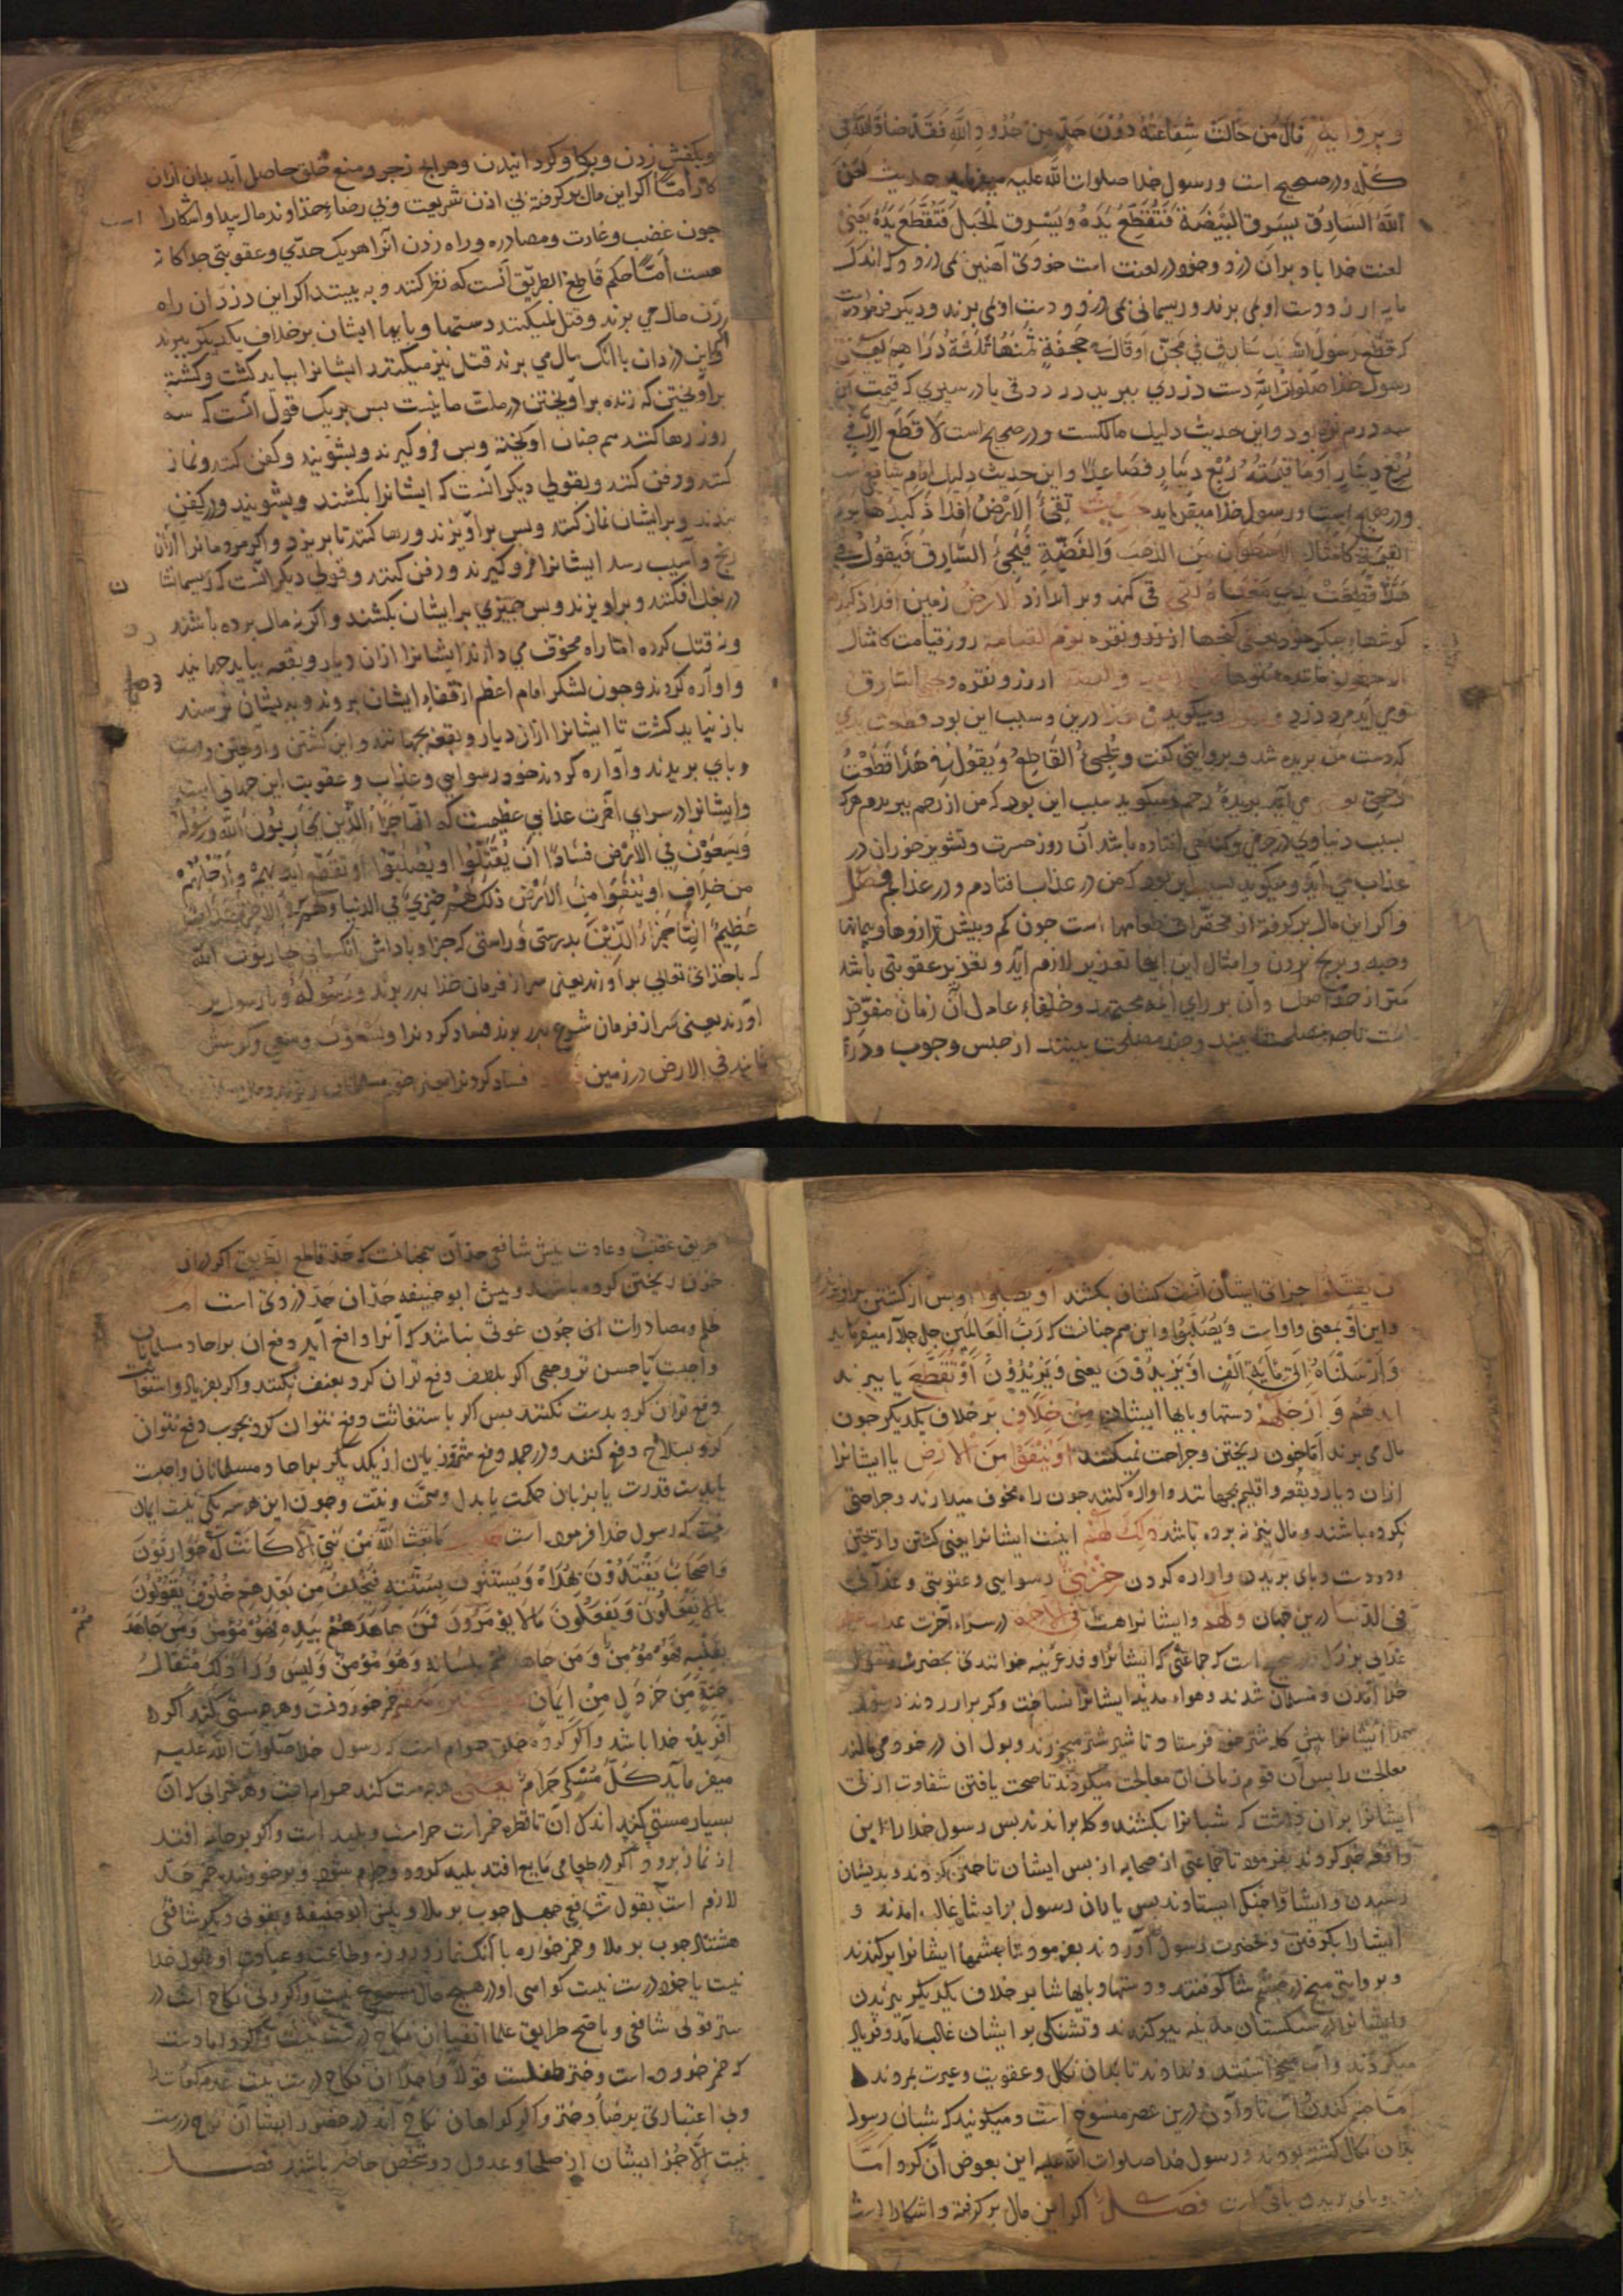 وبروایة قال من حالت شفاعته دون حدّ من حدود الله فقد ضادّ الله فی
ملکه ودر صحیح است ورسول خدا صلوات الله علیه میفرماید حدیث لعن
الله السارق یسرق البیضة فتقطع یده ویسرق الحبل فتقطع یده یعنی
لعنت خدا باد بران دزد وخود در لعنت است خودی آهنین می دزدد که اندک
مایه ارزد ودست او می برند وریسمانی می دزدد ودست او می برند ودیکر فرموده است
که قطع رسول الله ید سارق فی مجنّ او قال حجفة ثمنها ثلثة دراهم یعنی
رسول خدا صلوات الله دست دزدی ببرید در درقی یا در سپری که قیمت آن
سه درم بود واین حدیث دلیل مالکست ودر صحیح است لا قطع الا فی
ربع دینار او ما قیمته ربع دینار فصاعدا واین حدیث دلیل امام شافعی است
ودر صحیح است ورسول خدا میفرماید حدیث تقیء الارض افلاذ کبدها یوم
القیمة کامثال الاسطوان من الذهب والفضة فیجیء السارق فیقول فی
هذا قطعت یدی معناه تقی قی کند وبر اندازد الارض زمین افلاذ کبدها
کوشهاء جکر خود یعنی کنجها از زر ونقره یوم القیامة روز قیامت کامثال
از زر ونقره ویجیء السارق
ومی آید مرد دزد ویقول ومیکوید فی هذا درین وسبب این بود قطعت یدی
که دست من بریده شد وبروایتی کفت ویجیء القاطع ویقول فی هذا قطعت
رحمی ومی آید بریدهٔ رحم ومیکوید سبب این بود که من از رحم ببریدم هرکه
بسبب دنیاوی در جرمی وکناهی افتاده باشد آن روز حسرت وتشویر خوران در
عذاب می آید ومیکوید سبب این بود که من در عذاب افتادم ودر عذابم فصل
واکر این مال برکرفته از محقرات طعامها است جون کم وبیش ترازوها وپیمانها
وحبه وبرنج بردن وامثال این اینجا تعزیر لازم آید وتعزیر عقوبتی باشد
کمتر از حدّ اصل وآن برای ائمه مجتهد وخلفاء عادل آن زمان مفوّض
است تا چه مصلحت بینند وچند مصلحت بینند از حبس وجوب ودرّه
وبکفش زدن وبرکاو کردانیدن وهرانچ زجر ومنع خلق حاصل آید بدان ازان
کار امّا اکر این مال برکرفته بی اذن شریعت وبی رضاء خداوند مال پیدا وآشکارا است
جون غضب وغارت ومصادره وراه زدن آنرا هریک حدّی وعقوبتی جداکانه
هست امّا حکم قاطع الطریق آنست که نظر کنند وبه بینند اکر این دزدان راه
زن مال می برند وقتل نمیکنند دستها وپایها ایشان برخلاف یکدیکر ببرند
واکر این دزدان با آنک مال می برند قتل نیز میکنند ایشانرا بباید کشت وکشته
برآویختن که زنده برآویختن در ملت ما نیست پس بریک قول آنست که سه
روز رها کنند هم جنان آویخته وپس فرو کیرند وبشویند وکفن کنند ونماز
کنند ودفن کنند وبقولی دیکر آنست که ایشانرا بکشند وبشویند ودر کفن
نهند وبرایشان نماز کنند وپس برآویزند ورها کنند تا بریزد واکر مردمانرا ازان
رنج وآسیب رسد ایشانرا فرو کیرند ودفن کنند وقولی دیکر آنست که ریسمانشان
در بغل افکنند وبرآویزند وپس بچیزی برایشان بکشند واکر نه مال برده باشند
ونه قتل کرده امّا راه مخوف می دارند ایشانرا ازان دیار وبقعه بباید جهانید
وآواره کردند وجون لشکر امام اعظم از قفاء ایشان بروند وبدیشان نرسند
باز نباید کشت تا ایشانرا ازان دیار وبقعه بجهانند واین کشتن وآویختن ودست
وپای بریدن وآواره کردند خود رسوایی وعذاب وعقوبت این جهانی است
وایشانرا در سرای آخرت عذابی عظیمست که انّما جزاء الذین یحاربون الله ورسوله
ویسعون فی الارض فسادا ان یقتّلوا او یصلّبوا او تقطّع ایدیهم وارجلهم
من خلاف او ینفوا من الارض ذلک لهم خزی فی الدنیا ولهم فی الاخرة عذاب
عظیم انّما جزاء الذین بدرستی وراستی که جزا وپاداش آنکسانی یحاربون الله
که باخدای تعالی برآورند یعنی سر از فرمان خدا بدر برند ورسوله وبا رسول بر
آورند یعنی سر از فرمان شرع بدر برند فساد کردند را ویسعون وسعی وکوشش
نمایند فی الارض در زمین فسادا فساد کردند را یعنی خون مسلمانان ریزند ومال
ان یقتّلوا جزای ایشان آنست کشان بکشند او یصلّبوا وپس از کشتن برآویزند
واین او بمعنی واو است ویصلّبوا واین هم جنانست که ربّ العالمین جلّ جلاله میفرماید
وارسلناه الی مایة الف او یزیدون یعنی ویزیدون او تقطّع یا ببرند
ایدیهم وارجلهم دستها وپایها ایشان من خلاف بر خلاف یکدیکر جون
مال می برند امّا خون ریختن وجراحت نمیکنند او ینفوا من الارض یا ایشانرا
ازان دیار وبقعه واقلیم بجهانند وآواره کنند جون راه مخوف میدارند وجراحتی
نکرده باشند ومال نیز نه برده باشند ذلک لهم اینست ایشانرا یعنی کشتن وآویختن
ودست وپای بریدن وآواره کردن خزی رسوایی وعقوبتی وعذابی
فی الدنیا درین جهان ولهم وایشانراست فی الاخرة در سراء آخرت عذاب عظیم
عذابی بزرک ودر صحیح است که جماعتی که ایشانرا وفد عرینه خوانندی بحضرت رسول
خدا آمدند ومسلمان شدند وهواء مدینه ایشانرا نساخت وکر برآوردند رسول
خدا ایشانرا پیش کله شتر خود فرستاد تا شیر شتر میخورند وبول آن در خود می مالند
معالجت را پس آن قوم زمانی آن معالجت میکردند تا صحت یافتند شقاوت ازلی
ایشانرا بران داشت که شبانرا بکشند وکله براندند پس رسول خدا را ازین
واقعه خبر کردند بفرمود تا جماعتی از صحابه از پس ایشان تاختن کردند وبدیشان
رسیدند وایشان واجنک ایستادند پس یاران رسول برایشان غالب آمدند و
ایشانرا بکرفتند وبحضرت رسول آوردند بفرمود تا چشمها ایشانرا برکندند
وبروایتی میخ در چشمشان کوفتند ودستها وپایهاشان برخلاف یکدیکر بریدند
وایشانرا در سنکستان مدینه بیوکندند وتشنکی برایشان غالب آمد وفریاد
میکردند وآب میخواستند وندادند تا بدان نکال وعقوبت وعبرت بمردند
امّا خبر کندن آب نادادن درین عصر منسوخ است ومیکویند که شبان رسول
بدان نکال کشته بودند ورسول خدا صلوات الله علیه این بعوض آن کرد امّا
دست وپای بریدن باقی است فصل اکر این مال برکرفته وآشکارا است
طریق غصب وغارت پیش شافعی حدّ آن همجنانست که حدّ قاطع الطریق اکر دران
خون ریختن کرده باشند وپیش ابو حنیفه حدّ آن حدّ دزدی است امّا
ظلم ومصادرات آن جون عونی نباشد که آنرا دافع آید دفع آن بر احاد مسلمانان
واجبست باحسن تر وجهی اکر بلطف دفع توان کرد بعنف نکنند واکر بفریاد واستغاثت
دفع توان کرد بدست نکنند پس اکر باستغاثت دفع نتوان کرد بجوب دفع نتوان
کرد بسلاح دفع کنند ودر جمله دفع متمرّدیان از یکدیکر بر احاد مسلمانان واجبست
یا بدست قدرت یا بزبان حکمت یا بدل وهمّت ونیّت وجون این هر سه یکی نیست ایمان
نیست که رسول خدا فرموده است حدیث ما بعث الله من نبیّ الا کانت له حواریّون
واصحاب یقتدون بهداه ویستنّون بسنّته فیخلف من بعدهم خلوف یقولون
ما لا یفعلون ویفعلون ما لا یؤمرون فمن جاهدهم بیده فهو مؤمن ومن جاهد
بقلبه فهو مؤمن ومن جاهدهم بلسانه وهو مؤمن ولیس وراء ذلک مثقال
حبّة من خردل من ایمان خمر خوردنست وهرچه مستی کند اکر
آفریده خدا باشد واکر کرده خلق حرام است که رسول خدا صلوات الله علیه
میفرماید کلّ مسکر حرام یعنی هرچه مست کند حرام است وهر شرابی که آن
بسیار مستی کند اندک آن تا قطره خمر است حرامست وپلید است واکر بر جامه افتد
از نماز برود واکر در طعامی مایع افتد پلید کردد وحرام شود وبر خوردند خمر حدّ
لازم است بقول شافعی جهل جوب بر ملا وپیش ابو حنیفه وبقولی دیکر شافعی
هشتاد جوب بر ملا وخمر خواره با آنک نماز وروزه وطاعت وعبادت او قبول خدا
نیست یا خود درست نیست کواهی او در هیچ حال مسموع نیست واکر ولی نکاح است در
ستر قولی شافعی وباصح طرایق علما اتفاق آن نکاح درست نیست
که خمر خوردن است ودختر طفلست قولا واحدا آن نکاح درست نیست
وبی اعتباری برضا دختر واکر کواهان نکاح اند در حضور ایشان نکاح درست
نیست الا بجز ایشان از صلحا وعدول دو شخص حاضر باشند فصل